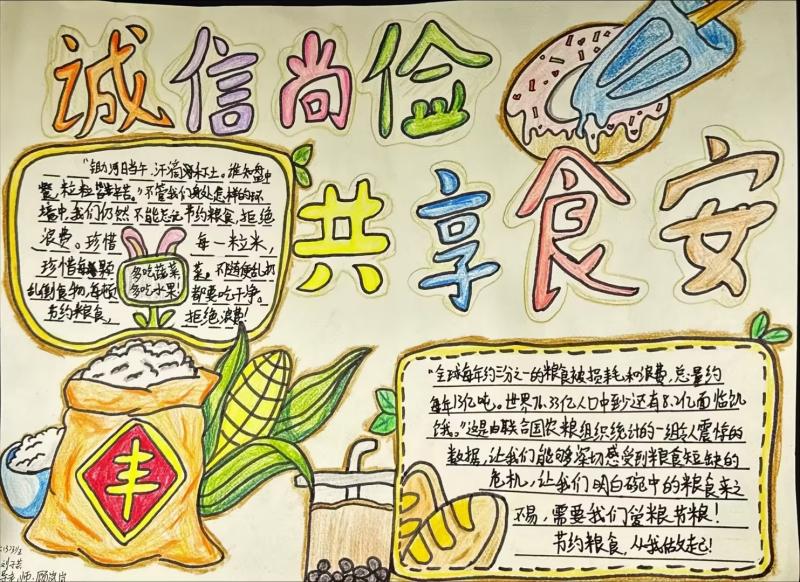 诚信尚俭
共享食安
"锄禾日当午,汗滴禾下土。谁知盘中
餐,粒粒皆辛苦。"不管我们身处怎样的环
境中,我们仍然不能忘记节约粮食,拒绝
浪费。珍惜每一粒米,
珍惜每颗菜。不随便乱扔
乱倒食物,每顿都要吃干净。
节约粮食,拒绝浪费!
多吃蔬菜
多吃水果!
丰
"全球每年约三分之一的粮食被损耗和浪费,总量约
每年13亿吨。世界76.33亿人口中至少还有8.2亿面临饥
饿。"这是由联合国农粮组织统计的一组令人震惊的
数据,让我们能够深切感受到粮食短缺的
危机,让我们明白碗中的粮食来之
不易,需要我们爱粮节粮!
节约粮食,从我做起!